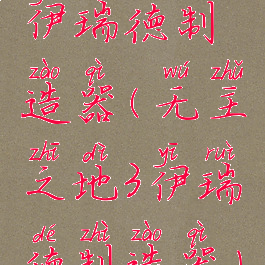 伊瑞德制
zào qì wú zhǔ
造器(无主
zhī dì yī ruì
之地3伊瑞
dé zhì zào qì
德制造器)